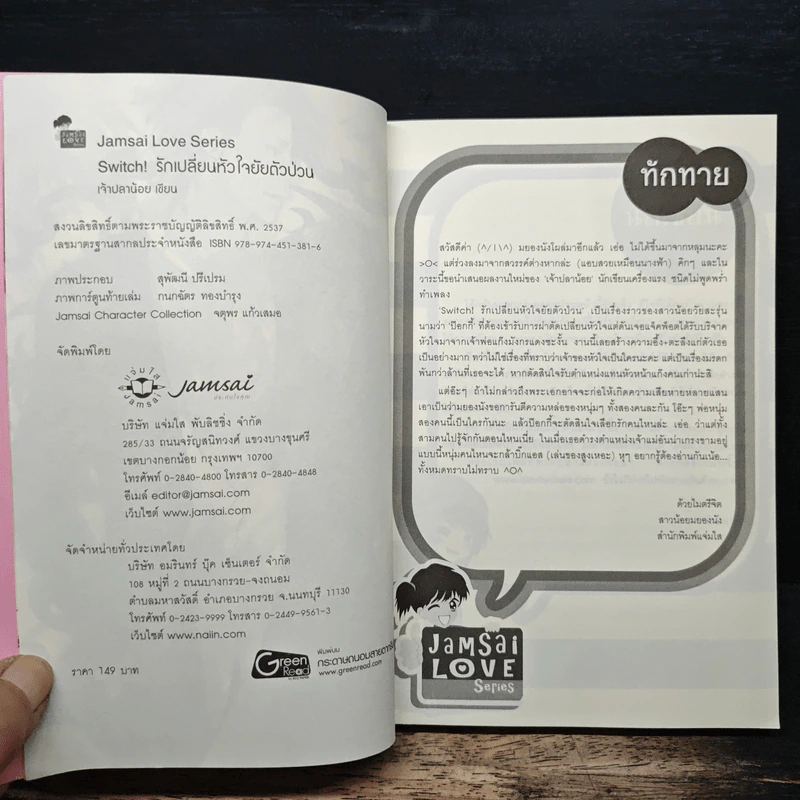 JAMSAI
LOVE
Series
Jamsai Love Series
Switch! รักเปลี่ยนหัวใจยัยตัวป่วน
เจ้าปลาน้อย เขียน
สงวนลิขสิทธิ์ตามพระราชบัญญัติลิขสิทธิ์ พ.ศ. 2537
เลขมาตรฐานสากลประจำหนังสือ ISBN 978-974-451-381-6
ภาพประกอบ สุพัฒนี ปรีเปรม
ภาพการ์ตูนท้ายเล่ม กนกฉัตร ทองบำรุง
Jamsai Character Collection จตุพร แก้วเสมอ
จัดพิมพ์โดย
แจ่มใส
JAMSAI
Jamsai
บริษัท แจ่มใส พับลิชชิ่ง จำกัด
285/33 ถนนจรัญสนิทวงศ์ แขวงบางขุนศรี
เขตบางกอกน้อย กรุงเทพฯ 10700
โทรศัพท์ 0-2840-4800 โทรสาร 0-2840-4848
อีเมล์ editor@jamsai.com
เว็บไซต์ www.jamsai.com
จัดจำหน่ายทั่วประเทศโดย
บริษัท อมรินทร์ บุ๊ค เซ็นเตอร์ จำกัด
108 หมู่ที่ 2 ถนนบางกรวย-จงถนอม
ตำบลมหาสวัสดิ์ อำเภอบางกรวย จ.นนทบุรี 11130
โทรศัพท์ 0-2423-9999 โทรสาร 0-2449-9561-3
เว็บไซต์ www.naiin.com
ราคา 149 บาท
Green
Read
พิมพ์บน
กระดาษถนอมสายตากรีน
www.greenread.com
ทักทาย
สวัสดีค่า (^/|\^) มยองนังโผล่มาอีกแล้ว เอ่อ ไม่ได้ขึ้นมาจากหลุมนะคะ
>O< แต่ร่วงลงมาจากสวรรค์ต่างหากล่ะ (แอบสวยเหมือนนางฟ้า) คิกๆ และใน
วาระนี้ขอนำเสนอผลงานใหม่ของ 'เจ้าปลาน้อย' นักเขียนเครื่องแรง ชนิดไม่พูดพร่ำ
ทำเพลง
'Switch! รักเปลี่ยนหัวใจยัยตัวป่วน' เป็นเรื่องราวของสาวน้อยวัยสะรุ่น
นามว่า 'ป๊อกกี้' ที่ต้องเข้ารับการผ่าตัดเปลี่ยนหัวใจแต่ดันเจอแจ็คพ็อตได้รับบริจาค
หัวใจมาจากเจ้าพ่อแก๊งมังกรแดงซะงั้น งานนี้เลยสร้างความอึ้ง+ตะลึงแก่ตัวเธอ
เป็นอย่างมาก ทว่าไม่ใช่เรื่องที่ทราบว่าเจ้าของหัวใจเป็นใครนะคะ แต่เป็นเรื่องมรดก
พันกว่าล้านที่เธอจะได้ หากตัดสินใจรับตำแหน่งแทนหัวหน้าแก๊งคนเก่าน่ะสิ
แต่อ๊ะๆ ถ้าไม่กล่าวถึงพระเอกอาจจะก่อให้เกิดความเสียหายหลายแสน
เอาเป็นว่ามยองนังขอการันตีความหล่อของหนุ่มๆ ทั้งสองคนละกัน โอ๊ะๆ พ่อหนุ่ม
สองคนนี้เป็นใครกันนะ แล้วป๊อกกี้จะตัดสินใจเลือกรักคนไหนล่ะ เอ่อ ว่าแต่ทั้ง
สามคนไปรู้จักกันตอนไหนเนี่ย ในเมื่อเธอดำรงตำแหน่งเจ้าแม่อันน่าเกรงขามอยู่
แบบนี้หนุ่มคนไหนจะกล้าบิ๊กแอส (เล่นของสูงเหอะ) หุๆ อยากรู้ต้องอ่านกันเน้อ...
ทั้งหมดทราบไม่ทราบ ^O^
ด้วยไมตรีจิต
สาวน้อยมยองนัง
สำนักพิมพ์แจ่มใส
JAMSAI
LOVE
Series